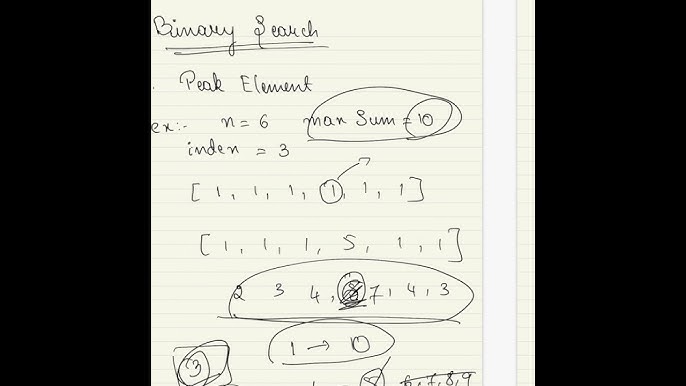 Binary Search
Peak Element
ex:- n = 6 max Sum = 10
index = 3
[ 1, 1, 1, 1, 1, 1 ]
[ 1, 1, 1, 5, 1, 1 ]
2 3 4, 7, 4, 3
1 → 10
3
6, 7, 8, 9